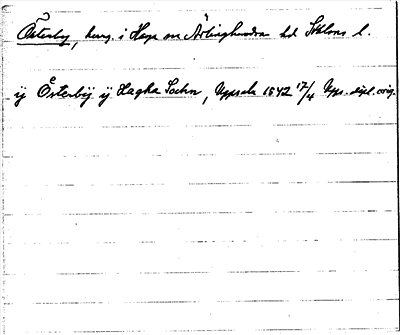 Österby, herrg. i Haga sn Ärlinghundra hd Sthlms l.
ÿ Österbÿ ÿ Hagha Sochn, Uppsala 1542 17/4 Upps. dipl. orig.